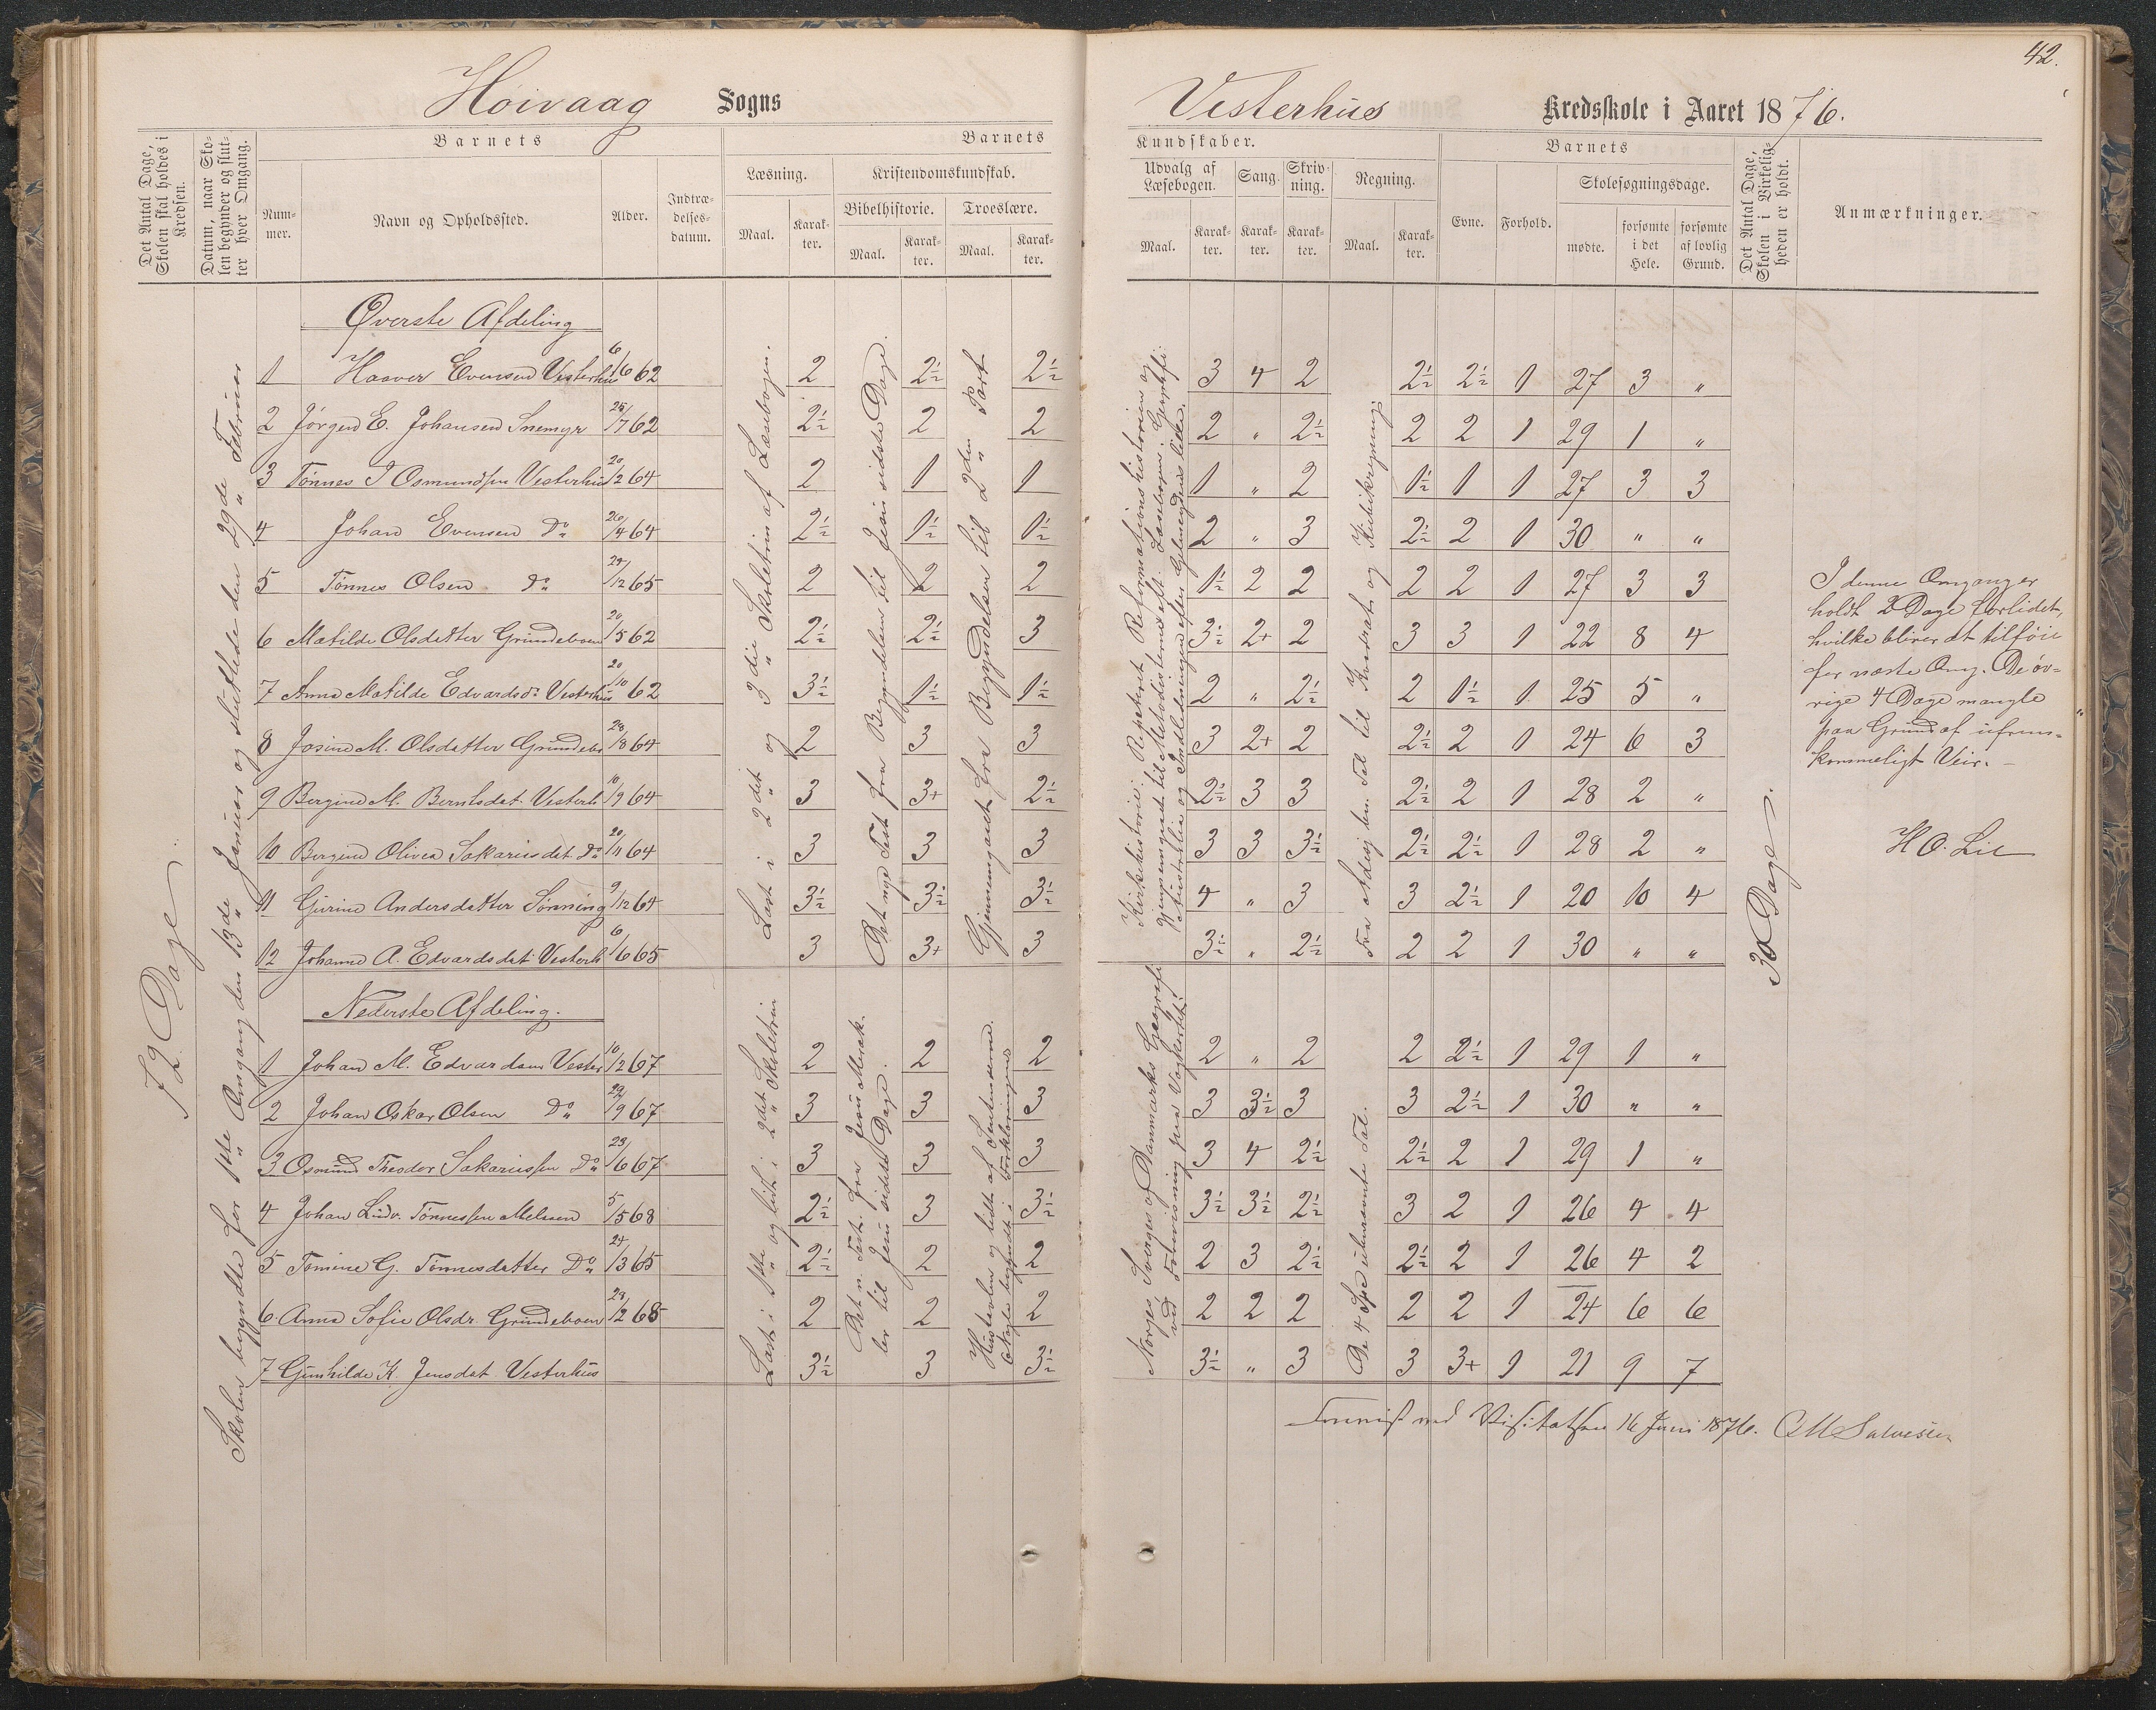 42.
Høivaag Sogns
Vesterhus Kredsskole i Aaret 1876.
Det Antal Dage, Skolen skal holdes i Kredsen.
Datum, naar Skolen begynder og slutter hver Omgang.
Barnets
Nummer.
Navn og Opholdssted.
Alder.
Indtrædelsesdatum.
Barnets
Læsning.
Maal.
Karakter.
Kristendomskundskab.
Bibelhistorie.
Maal.
Karakter.
Troeslære.
Maal.
Karakter.
Kundskaber.
Udvalg af Læsebogen.
Maal.
Karakter.
Sang.
Karakter.
Skrivning.
Karakter.
Regning.
Maal.
Karakter.
Barnets
Evne.
Forhold.
Skolesøgningsdage.
mødte.
forsømte i det Hele.
forsømte af lovlig Grund.
Det Antal Dage, Skolen i Virkeligheden er holdt.
Anmærkninger.
72 Dage.
Skolen begyndte for 1ste Omgang den 13de Januar og sluttede den 29de Februar
Øverste Afdeling
1 Haaver Evensen Vesterhus 6/6 62 2 2½ 2½ 3 4 2 2½ 2½ 1 27 3 "
2 Jørgen E. Johansen Snemyr 25/7 62 2½ 2 2 2 " 2½ 2 2 1 29 1 "
3 Tønnes J Osmundsen Vesterhus 20/2 64 2 1 1 1 " 2 1½ 1 1 27 3 3
4 Johan Evensen Do 26/4 64 2½ 1½ 1½ 2 " 3 2½ 2 1 30 " "
5 Tønnes Olsen Do 29/12 65 2 2 2 1½ 2 2 2 2 1 27 3 3
6 Matilde Olsdatter Grundeboen 20/5 62 2½ 2½ 3 3½ 2+ 2 3 3 1 22 8 4
7 Anna Matilde Edvardsdr Vesterhus 20/10 62 3½ 1½ 1½ 2 " 2½ 2 1½ 1 25 5 "
8 Josine M. Olsdatter Grundebo 28/8 64 2 3 3 3 2+ 2 2½ 2 1 24 6 3
9 Bergine M. Berntsdat. Vesterh 10/9 64 3 3+ 2½ 2½ 3 3 2½ 2 1 28 2 "
10 Bergine Olivea Sakariasdat Do 20/11 64 3 3 3 3 3 3½ 2½ 2½ 1 28 2 "
11 Gurine Andersdatter Sønning 9/12 64 3½ 3½ 3½ 4 " 3 3 2½ 1 20 10 4
12 Johanne A. Edvardsdat. Vesterh 6/6 65 3 3+ 3 3½ " 2½ 2 2 1 30 " "
Læst i 2det og 3die Skoletrin af Læsebogen.
Det nye Test. fra Begyndelsen til Jesu sidste Dage.
Gjennemgaaet fra Begyndelsen til 2den Part
Kirkehistorie: Repeteret Reformationshistorien og
gjennemgaaet til Metodisterne efter Læsebogen; Geografi:
Australia og Indledningen
Kvadrat og Kubikregning.
30 Dage.
I denne Omgang er
holdt 2 Dage forlidet,
hvilke bliver at tilføie
for næste Omg. De øv-
rige 4 Dage mangle
paa Grund af ufrem-
kommeligt Veir. -
H O. Lie
Nederste Afdeling.
1 Johan M. Edvardsen Vester 10/2 67 2 2 2 2 " 2 2 2½ 1 29 1 "
2 Johan Oskar Olsen Do 29/9 67 3 3 3 3 3½ 3 3 2½ 1 30 " "
3 Osmund Theodor Sakariassen Do 23/6 67 3 3 3 3 4 2½ 2½ 2 1 29 1 "
4 Johan Ludv. Tønnessen 5/5 68 2½ 3 3½ 3½ 3½ 2½ 3 2 1 26 4 4
5 Tomine G. Tønnesdatter Do 24/3 65 2½ 2 2 2 3 2½ 2½ 2 1 26 4 2
6. Anna Sofie Olsdr. Grundeboen 29/12 68 2 2 2 2 2 2 2 2 1 24 6 6
7 Gunhilde K Jensdat Vesterhus 3½ 3 3½ 3½ " 3 3 3+ 1 21 9 7
Læst i 1ste og lidt i 2det Skoletrin
Det n. Test. fra Jesu Mirak-
ler til Jesu sidste Dage.
Norges, Sveriges og Danmarks Geografi
De 4 Sp. i ubenævnte Tal.
Fremvist ved Visitatsen 16 Juni 1876. CM Salvesen